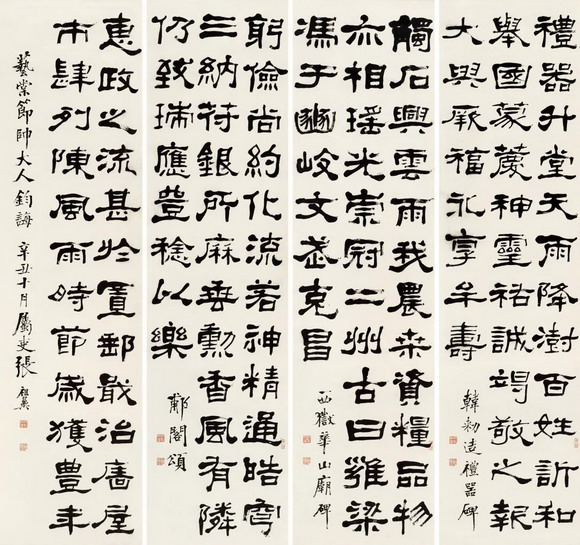 禮器升堂天雨降澍百姓訢和
舉國蒙慶神靈祐誠竭敬之報
大與厥福永享牟壽
韓勑造禮器碑
觸石興雲雨我農桒資糧品物
亦相瑤光崇冠二州古曰雍梁
馮于豳岐文武克昌
西嶽華山廟碑
躬儉尚約化流若神精通晧穹
三納苻銀所歷垂勳香風有隣
仍致瑞應豊稔以樂
郙閣頌
惠政之流甚於置郵戢治廧屋
市肆列陳風雨時節歲獲豊年
藝棠節帥大人鈞誨 辛丑十月屬吏張祖翼